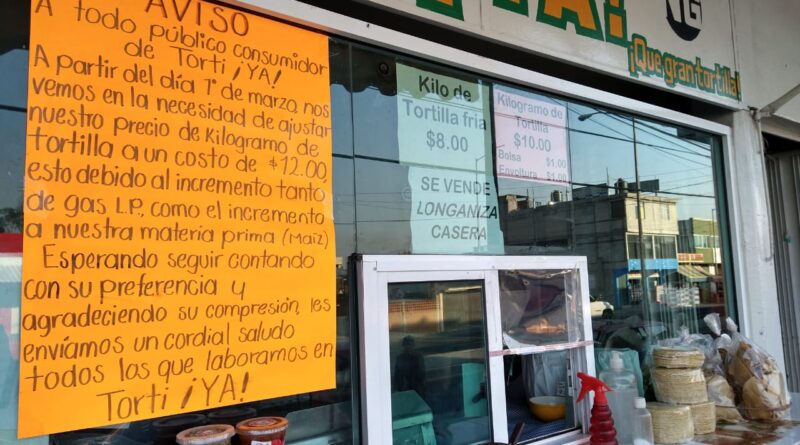 AVISO
A todo público consumidor
de Torti ¡YA!
A partir del día 1º de marzo, nos
vemos en la necesidad de ajustar
nuestro precio de Kilogramo de
tortilla a un costo de $12.00,
esto debido al incremento tanto
de gas L.P., como el incremento
a nuestra materia prima (Maíz)
Esperando seguir contando
con su preferencia y
agradeciendo su compresión, les
envíamos un cordial saludo
todos los que laboramos en
Torti ¡YA!
Kilo de
Tortilla fria
$8.00
SE VENDE
LONGANIZA
CASERA
Kilogramo de
Tortilla
$10.00
Bolsa $1.00
Envoltura $1.00
YA!
¡Que gran tortilla!
TG